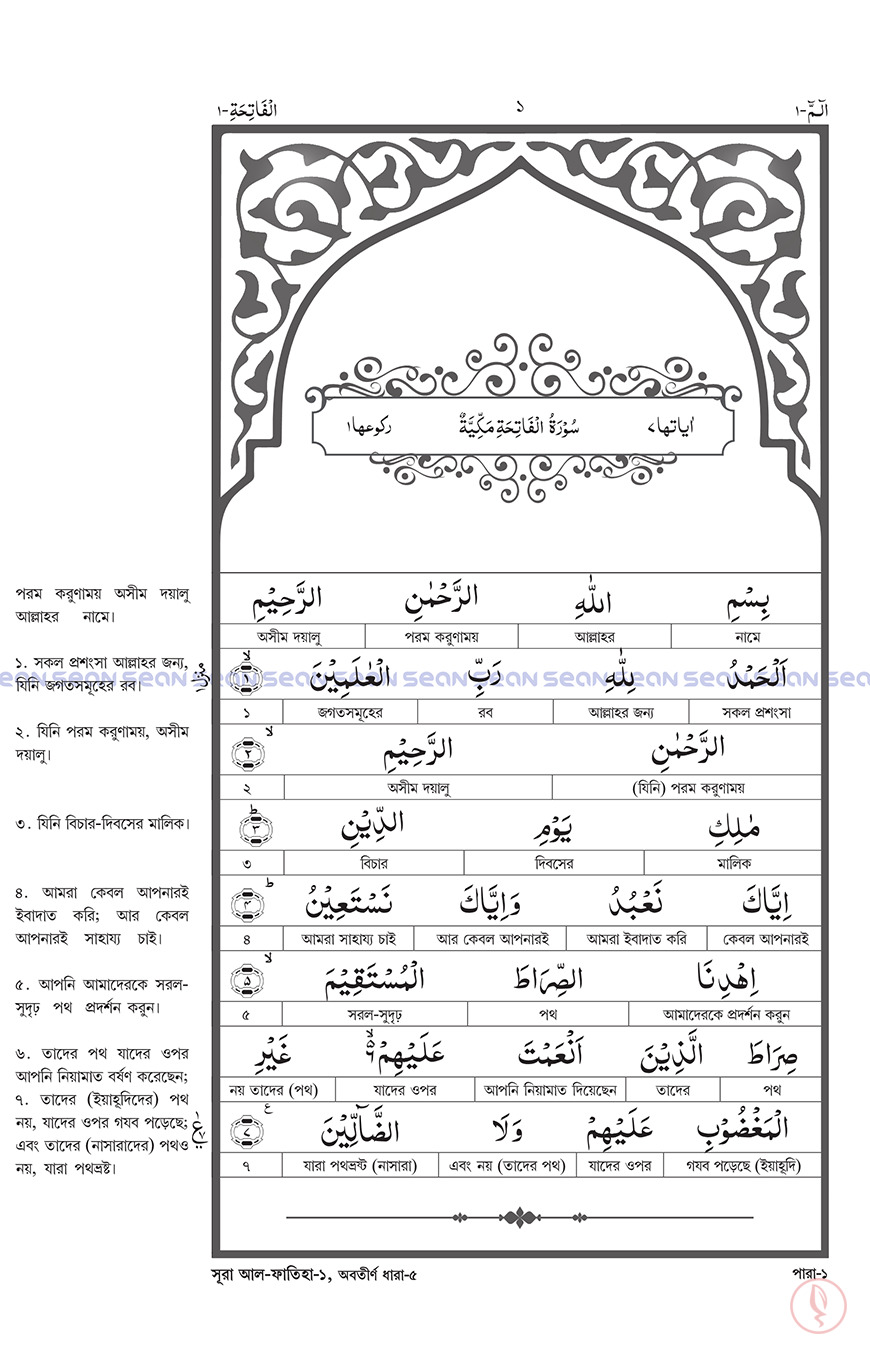 الٓمّٓ-١
١
الْفَاتِحَةِ-١
اٰیاتها٧ سُوْرَةُ الْفَاتِحَةِ مَكِّيَّةٌ رکوعها١
পরম করুণাময় অসীম দয়ালু
আল্লাহর নামে।
بِسْمِ اللّٰهِ الرَّحْمٰنِ الرَّحِيْمِ
নামে আল্লাহর পরম করুণাময় অসীম দয়ালু
১. সকল প্রশংসা আল্লাহর জন্য,
যিনি জগতসমূহের রব।
اَلْحَمْدُ لِلّٰهِ رَبِّ الْعٰلَمِيْنَ ۙ ١
সকল প্রশংসা আল্লাহর জন্য রব জগতসমূহের ১
২. যিনি পরম করুণাময়, অসীম
দয়ালু।
الرَّحْمٰنِ الرَّحِيْمِ ۙ ٢
(যিনি) পরম করুণাময় অসীম দয়ালু ২
৩. যিনি বিচার-দিবসের মালিক।
مٰلِكِ يَوْمِ الدِّيْنِ ؕ ٣
মালিক দিবসের বিচার ৩
৪. আমরা কেবল আপনারই
ইবাদাত করি; আর কেবল
আপনারই সাহায্য চাই।
اِيَّاكَ نَعْبُدُ وَاِيَّاكَ نَسْتَعِيْنُ ؕ ۴
কেবল আপনারই আমরা ইবাদাত করি আর কেবল আপনারই আমরা সাহায্য চাই ৪
৫. আপনি আমাদেরকে সরল-
সুদৃঢ় পথ প্রদর্শন করুন।
اِهْدِنَا الصِّرَاطَ الْمُسْتَقِيْمَ ۙ ۵
আমাদেরকে প্রদর্শন করুন পথ সরল-সুদৃঢ় ৫
৬. তাদের পথ যাদের ওপর
আপনি নিয়ামাত বর্ষণ করেছেন;
৭. তাদের (ইয়াহূদিদের) পথ
নয়, যাদের ওপর গযব পড়েছে;
এবং তাদের (নাসারাদের) পথও
নয়, যারা পথভ্রষ্ট।
صِرَاطَ الَّذِيْنَ اَنْعَمْتَ عَلَيْهِمْ ۙ۬ غَيْرِ
পথ তাদের আপনি নিয়ামাত দিয়েছেন যাদের ওপর নয় তাদের (পথ)
الْمَغْضُوْبِ عَلَيْهِمْ وَلَا الضَّآلِّيْنَ ٧ ع
গযব পড়েছে (ইয়াহূদি) যাদের ওপর এবং নয় (তাদের পথ) যারা পথভ্রষ্ট (নাসারা) ৭
সূরা আল-ফাতিহা-১, অবতীর্ণ ধারা-৫
পারা-১
sean sean sean sean sean sean sean sean